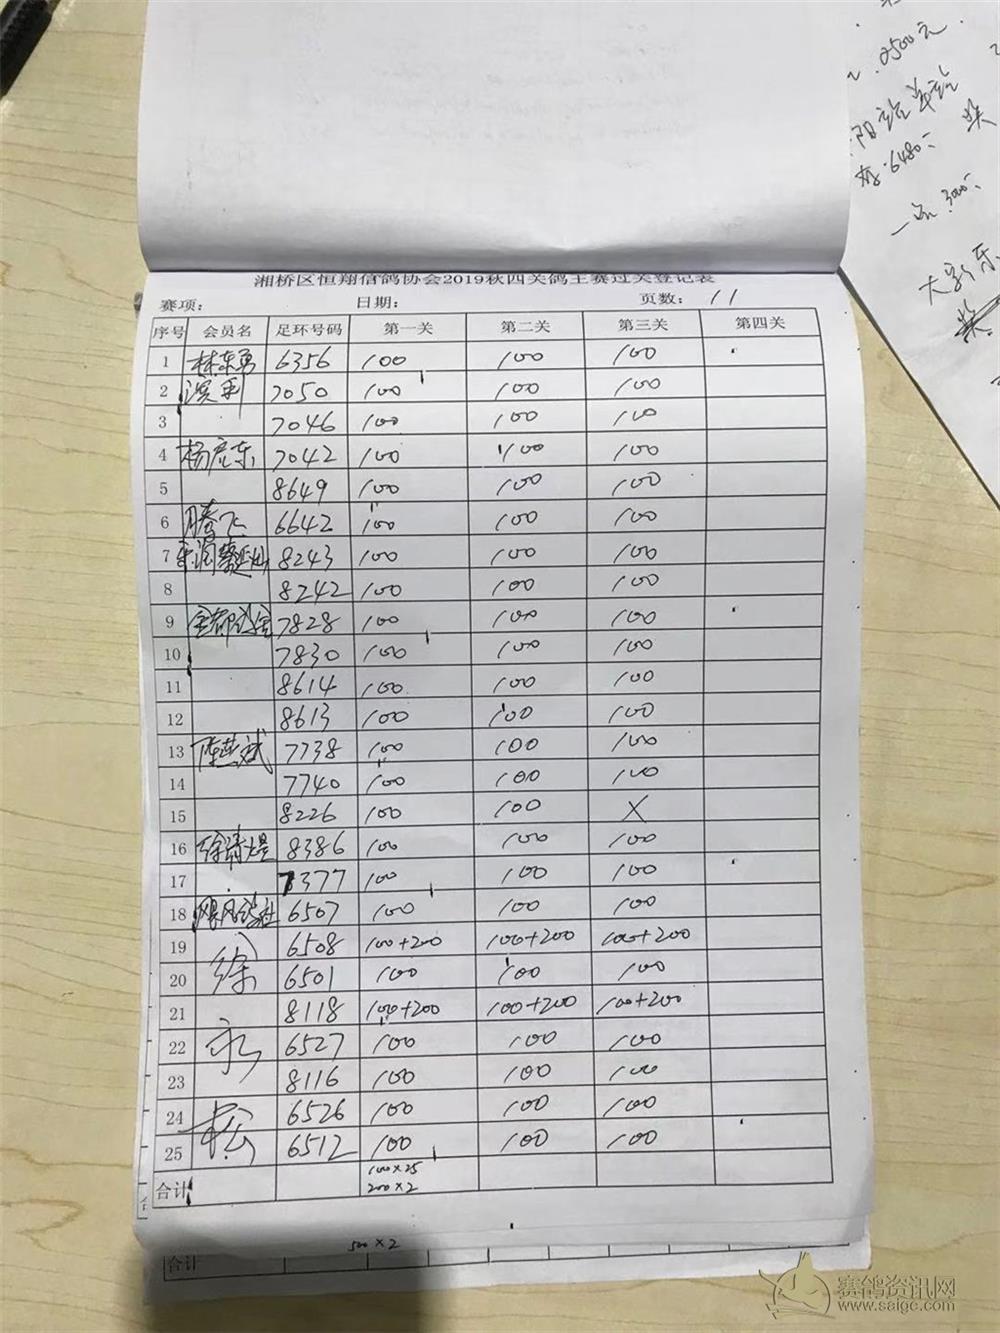 2500元
6480
湘桥区恒翔信鸽协会2019秋四关鸽王赛过关登记表
赛项： 日期： 页数： 11
序号 会员名 足环号码 第一关 第二关 第三关 第四关
1 林东勇 6356 100 100 100
2 滨利 7050 100 100 100
3 7046 100 100 100
4 杨彦东 7042 100 100 100
5 8649 100 100 100
6 腾飞 6642 100 100 100
7 8243 100 100 100
8 8242 100 100 100
9 7828 100 100 100
10 7830 100 100 100
11 8614 100 100 100
12 8613 100 100 100
13 7738 100 100 100
14 7740 100 100 100
15 8226 100 100 X
16 8386 100 100 100
17 7377 100 100 100
18 6507 100 100 100
19 徐 6508 100+200 100+200 100+200
20 6501 100 100 100
21 8118 100+200 100+200 100+200
22 永 6527 100 100 100
23 8116 100 100 100
24 松 6526 100 100 100
25 6512 100 100 100
合计 100×25
200×2
500×2
合计
赛鸽资讯网
www.saige.com